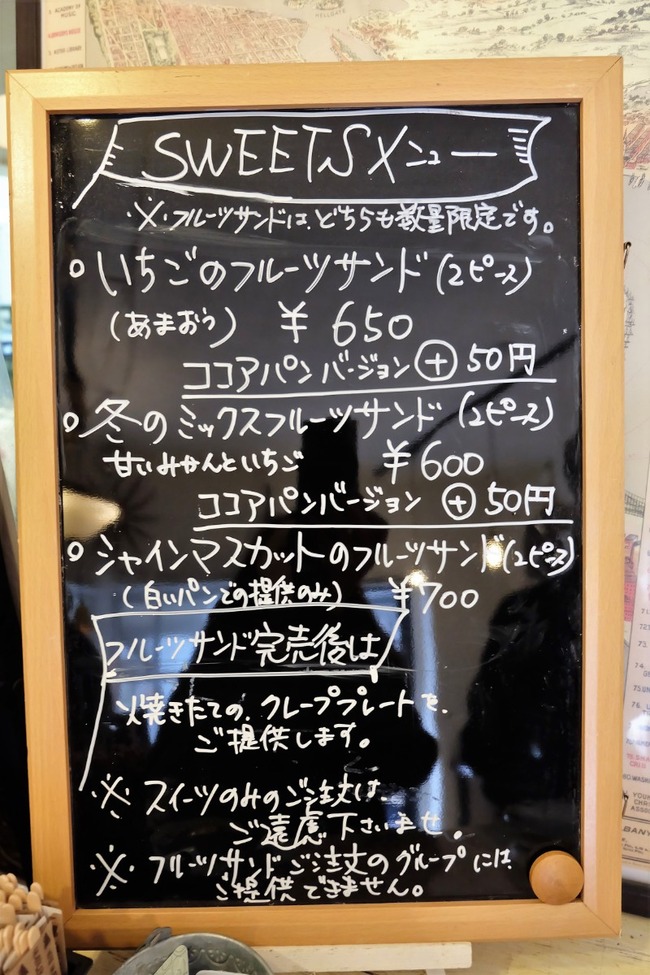 SWEETSメニュー
※フルーツサンドは、どちらも数量限定です。
○いちごのフルーツサンド(2ピース)
(あまおう) ¥650
ココアパンバージョン ⊕50円
○冬のミックスフルーツサンド (2ピース)
甘いみかんといちご ¥600
ココアパンバージョン ⊕50円
○シャインマスカットのフルーツサンド(2ピース)
(白いパンでの提供のみ) ¥700
フルーツサンド完売後は
焼きたての、クレーププレートを、
ご提供します。
※スイーツのみのご注文は、
ご遠慮下さいませ。
※フルーツサンドご注文のグループには、
ご提供できません。